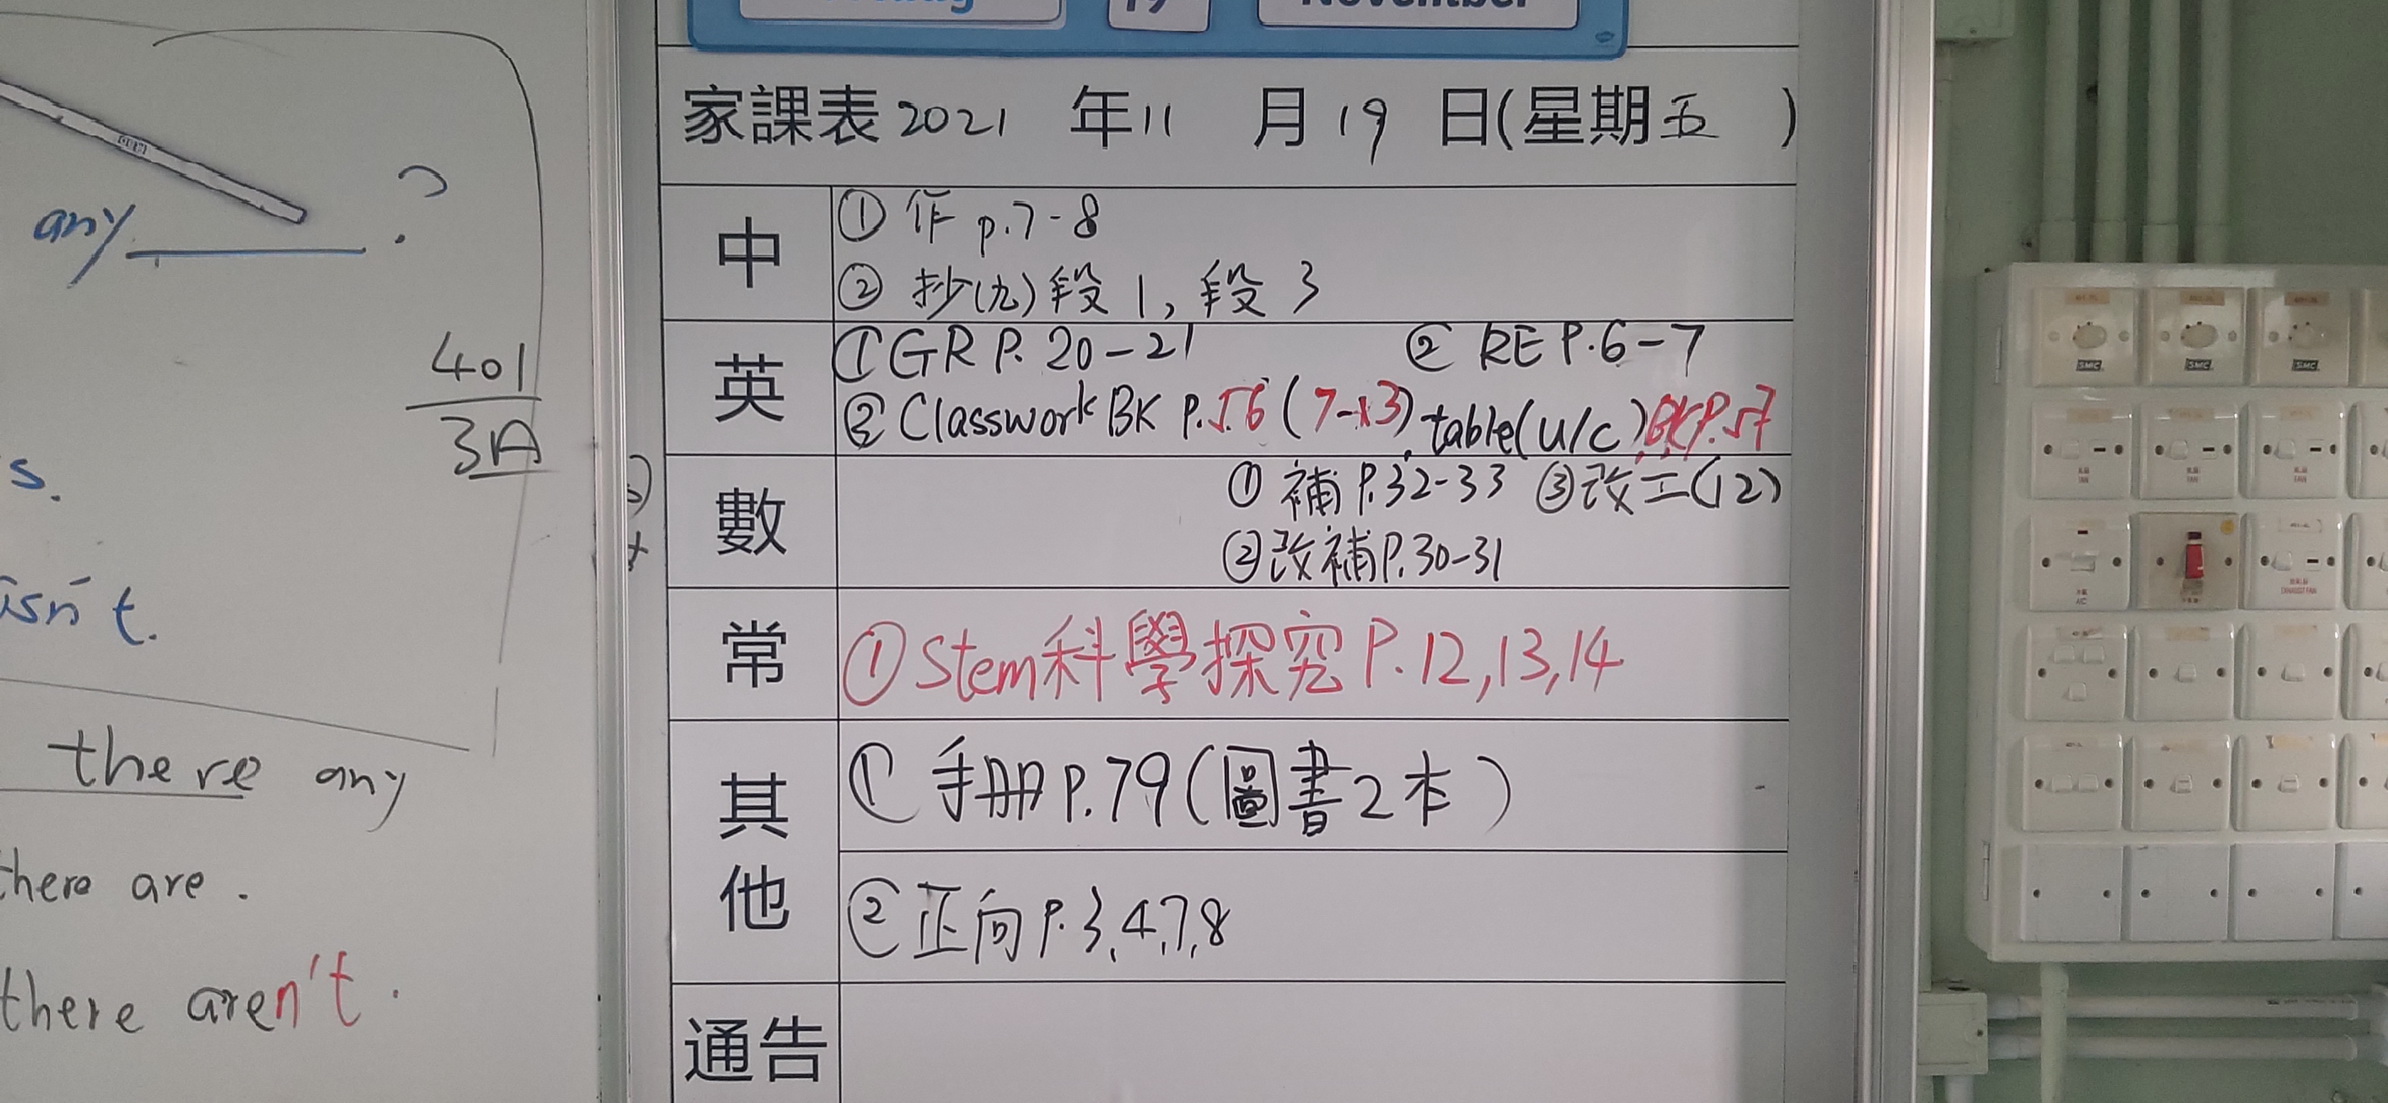 19
November
家課表 2021 年 11 月 19 日(星期五 )
中
① 作 p.7-8
② 抄(九)段1, 段3
英
① GR P. 20-21 ② RE P.6-7
③ Classwork BK P.56 (7-13), table(u/c) BK P.57
數
① 補 P.32-33 ③改工(12)
②改補P.30-31
常
① Stem科學探究 P.12,13,14
其他
① 手冊 P.79(圖書2本)
② 正向 P.3,4,7,8
通告
any ?
401
3A
s.
isn't.
there any
there are.
there aren't.